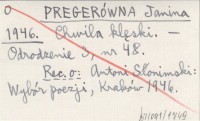 o PREGERÓWNA Janina
1946. Chwila klęski. –
Odrodzenie 3, nr 48.
Rec. o: Antoni Słonimski:
Wybór poezji, Kraków 1946.